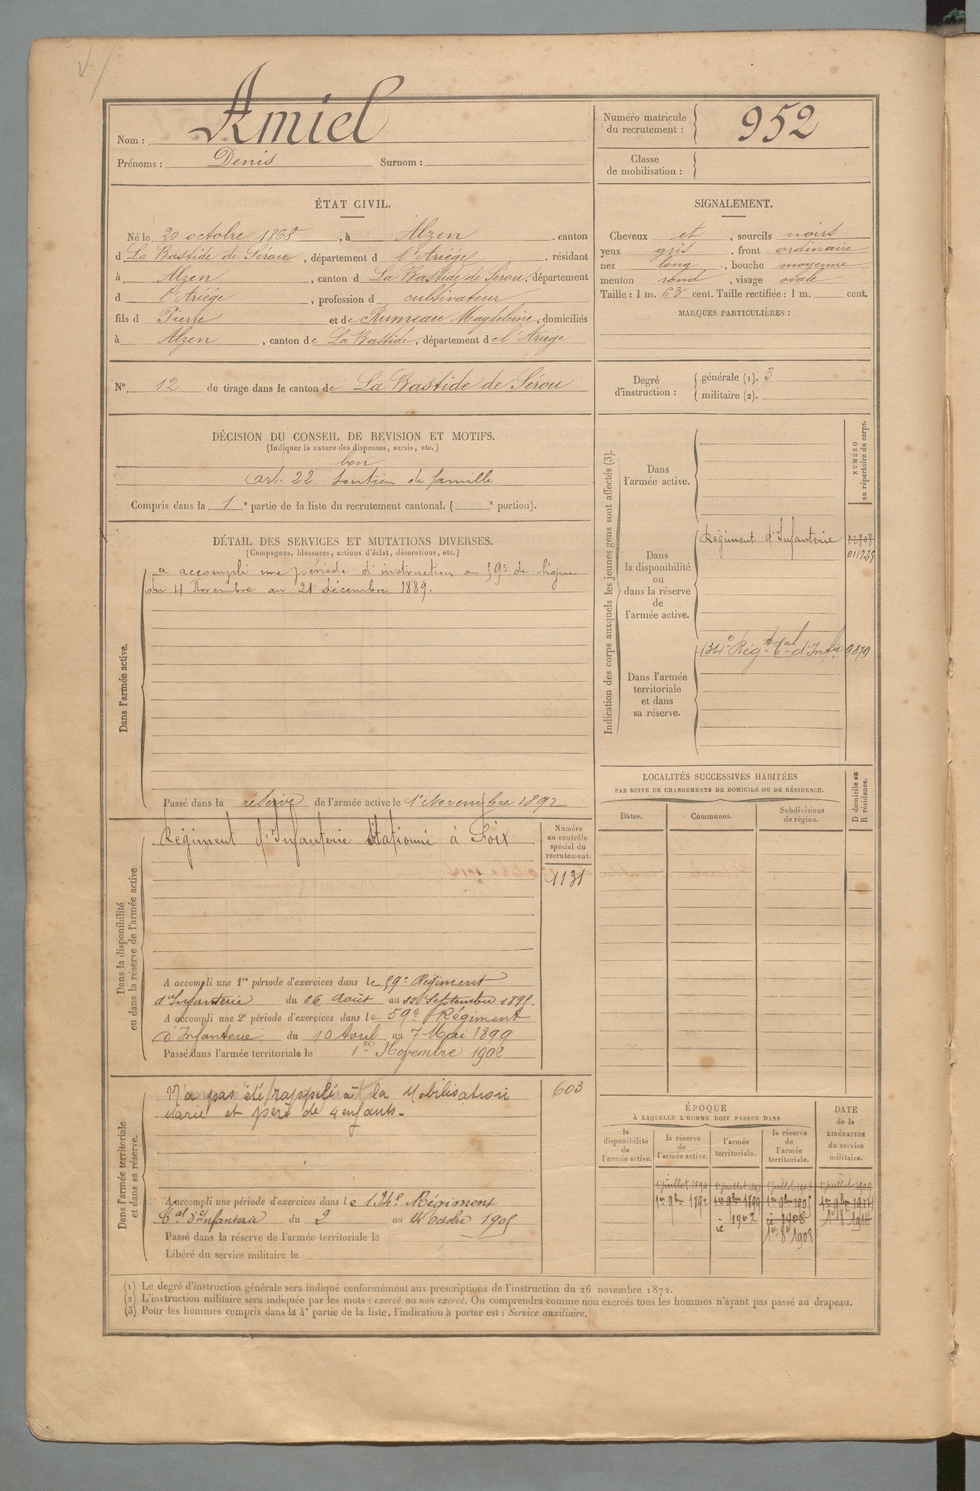 Nom : Amiel
Prénoms : Denis Surnom :
Numéro matricule du recrutement : 952
Classe de mobilisation :
ÉTAT CIVIL.
Né le 20 octobre 1868, à Alzen, canton
d La Bastide de Sérou, département d l'Ariège, résidant
à Alzen, canton d La Bastide de Sérou, département
d l'Ariège, profession d cultivateur
fils d Pierre et de Rumeau Magdeleine, domiciliés
à Alzen, canton de La Bastide, département de l'Ariège
N° 12 de tirage dans le canton de La Bastide de Sérou
SIGNALEMENT.
Cheveux et, sourcils noirs
yeux gris, front ordinaire
nez long, bouche moyenne
menton rond, visage ovale
Taille : 1 m. 63 cent. Taille rectifiée : 1 m. cent.
MARQUES PARTICULIÈRES :
Degré d'instruction : générale (1). 3
militaire (2).
DÉCISION DU CONSEIL DE REVISION ET MOTIFS.
(Indiquer la nature des dispenses, sursis, etc.)
bon
art. 22 soutien de famille
Compris dans la 1e partie de la liste du recrutement cantonal. ( e portion).
DÉTAIL DES SERVICES ET MUTATIONS DIVERSES.
(Campagnes, blessures, actions d'éclat, décorations, etc.)
Dans l'armée active.
a accompli une période d'instruction au 59e de ligne
du 4 Novembre au 21 décembre 1889.
Passé dans la réserve de l'armée active le 1er Novembre 1892
Dans la disponibilité
ou dans la réserve de l'armée active
Régiment d'Infanterie stationné à Foix
Numéro
au contrôle
spécial du
recrutement.
1131
A accompli une 1re période d'exercices dans le 59e Régiment
d'Infanterie du 26 Août au 22 Septembre 1895.
A accompli une 2e période d'exercices dans le 59e Régiment
d'Infanterie du 10 Avril au 7 Mai 1899
Passé dans l'armée territoriale le 1er Novembre 1902
Dans l'armée territoriale
et dans sa réserve.
N'a pas été rappelé à la Mobilisation
Marié et père de 4 enfants.
603
A accompli une période d'exercices dans le 134e Régiment
tal d'Infanterie du 2 au Octobre 1905
Passé dans la réserve de l'armée territoriale le
Libéré du service militaire le
Indication des corps auxquels les jeunes gens sont affectés (3).
NUMÉRO
au répertoire du corps.
Dans
l'armée active.
Dans
la disponibilité
ou
dans la réserve
de
l'armée active.
Régiment d'Infanterie
Dans l'armée
territoriale
et dans
sa réserve.
134e Régt tal d'Infie 9879
LOCALITÉS SUCCESSIVES HABITÉES
PAR SUITE DE CHANGEMENTS DE DOMICILE OU DE RÉSIDENCE.
Dates. Communes. Subdivisions de région.
D domicile ou
R résidence.
ÉPOQUE
À LAQUELLE L'HOMME DOIT PASSER DANS
la disponibilité de l'armée active.
la réserve de l'armée active.
l'armée territoriale.
la réserve de l'armée territoriale.
DATE de la LIBÉRATION du service militaire.
1er 9bre 1892
1902
1908
(1) Le degré d'instruction générale sera indiqué conformément aux prescriptions de l'instruction du 26 novembre 1872.
(2) L'instruction militaire sera indiquée par les mots : exercé ou non exercé. On comprendra comme non exercés tous les hommes n'ayant pas passé au drapeau.
(3) Pour les hommes compris dans la 4e partie de la liste, l'indication à porter est : Service auxiliaire.